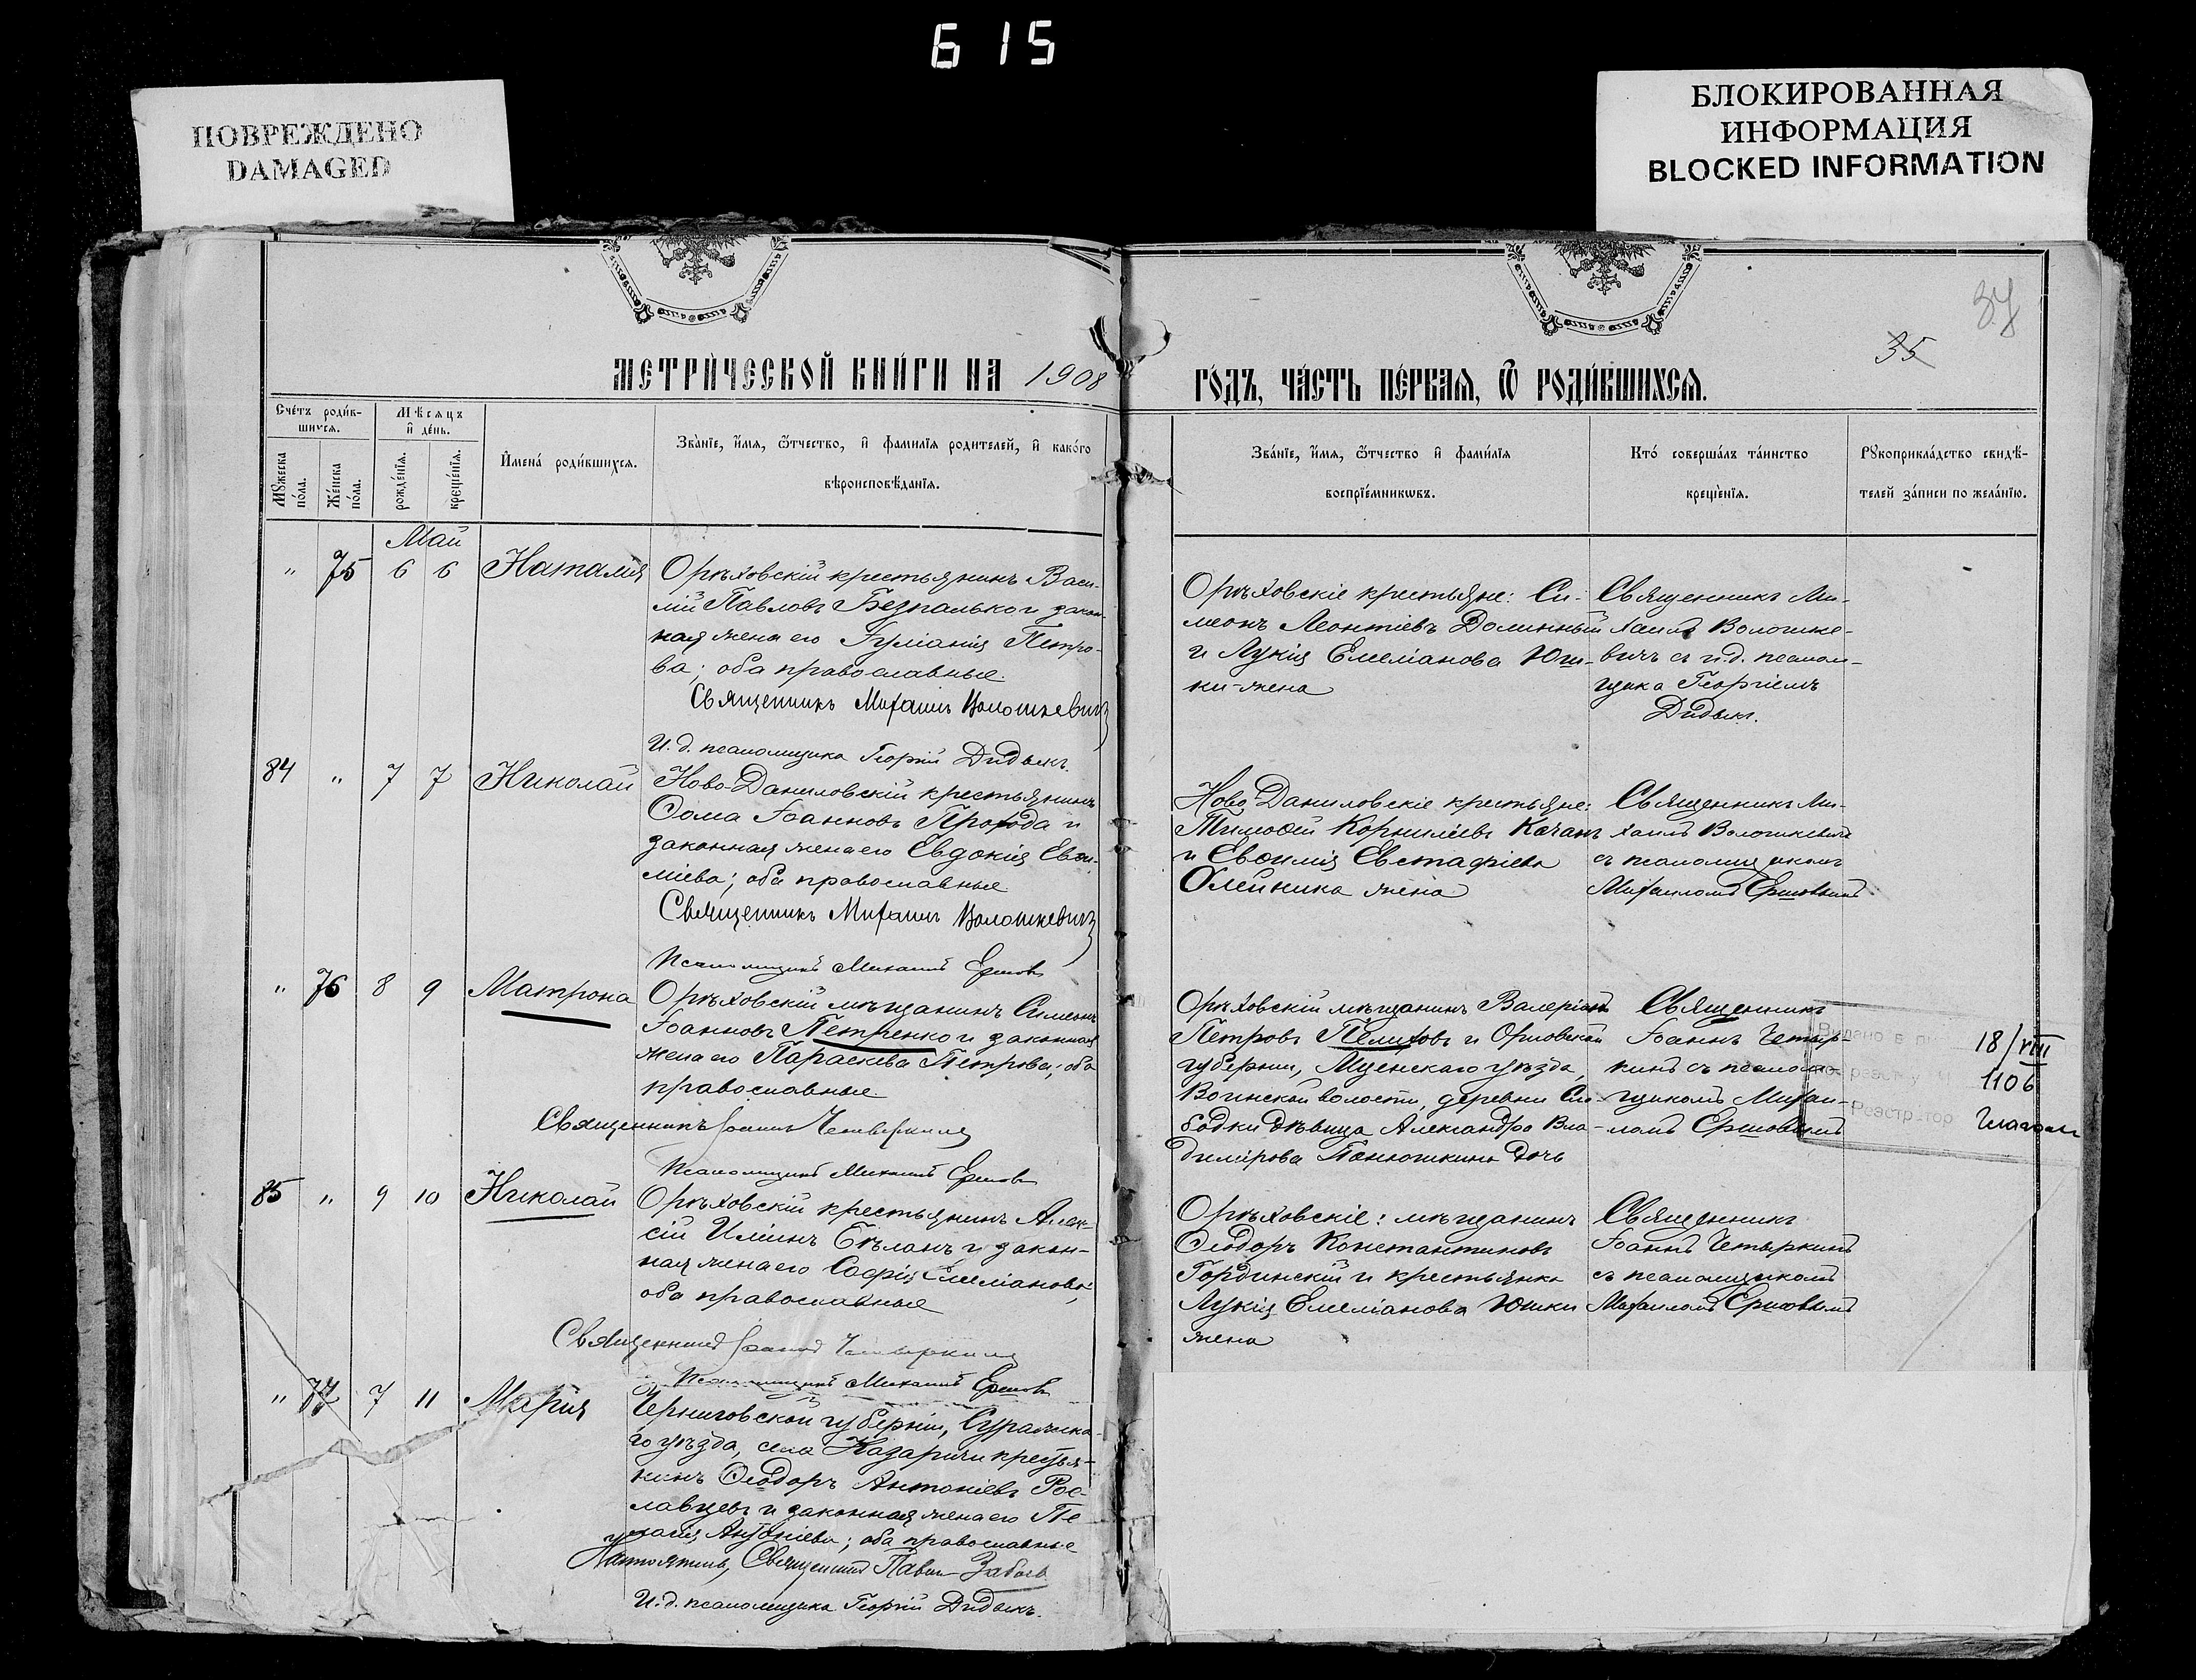 615
ПОВРЕЖДЕНО
DAMAGED
БЛОКИРОВАННАЯ
ИНФОРМАЦИЯ
BLOCKED INFORMATION
35
37
МЕТРИ́ЧЕСКОЙ КНИ́ГИ НА 1908
ГО́ДЪ, ЧА́СТЬ ПЕ́РВАЯ, Ѿ РОДИ́ВШИХСЯ.
Сче́тъ роди́в-
шихся.
Мѣсяцъ
и҆ де́нь.
Мꙋжеска
по́ла.
Же́нска
по́ла.
рожде́нїя.
креще́нїя.
И҆мена́ роди́вшихся.
Зва́нїе, и҆́мя, ѻ҆́тчество, и҆ фамилїя родителей, и҆ како́го
вѣроисповѣ́данїя.
Зва́нїе, и҆́мя, ѻ҆́тчество и҆ фами́лїя
воспрїе́мникѡвъ.
Кто́ соверша́лъ та́инство
креще́нїя.
Рꙋкоприкла́дство свидѣ́-
телей за́писи по жела́нїю.
Май
" 75 6 6 Наталія
Орѣховскій крестьянинъ Васи-
лій Павловъ Безпалько и закон-
ная жена его Іуліанія Петро-
ва; оба православные.
Священникъ Михаилъ Волошкевичъ
И. д. псаломщика Георгій Дидыкъ.
Орѣховскіе крестьяне: Си-
меонъ Леонтіевъ Долинный
и Лукія Емеліанова Юш-
ки-жена
Священникъ Ми-
хаилъ Волошке-
вичъ съ и.д. псалом-
щика Георгіемъ
Дидыкъ.
84 " 7 7 Николай
Ново-Даниловскій крестьянинъ
Ѳома Іоанновъ Прохода и
законная жена его Евдокія Евѳи-
міева; оба православные
Священникъ Михаилъ Волошкевичъ
Псаломщикъ Михаилъ Ершовъ
Ново-Даниловскіе крестьяне:
Тимоѳей Корниліевъ Качанъ
и Евѳимія Евстафіева
Олейника жена
Священникъ Ми-
хаилъ Волошкевичъ
съ псаломщикомъ
Михаиломъ Ершовымъ
" 76 8 9 Матрона
Орѣховскій мѣщанинъ Симеонъ
Іоанновъ Петренко и законная
жена его Параскева Петрова; оба
православные.
Священникъ Іоаннъ Четыркинъ
Псаломщикъ Михаилъ Ершовъ
Орѣховскій мѣщанинъ Валеріанъ
Петровъ Пелиховъ и Орловской
губерніи, Мценскаго уѣзда,
Воинской волости, деревни Сло-
бодки дѣвица Александра Вла-
димірова Панюшкина дочь
Священникъ
Іоаннъ Четыр-
кинъ съ псалом-
щикомъ Михаи-
ломъ Ершовымъ
18/VIII
1106
Реэстратор
85 " 9 10 Николай
Орѣховскій крестьянинъ Алек-
сій Иліинъ Бѣланъ и закон-
ная жена его Софія Емеліанова;
оба православные
Священникъ Іоаннъ Четыркинъ
Псаломщикъ Михаилъ Ершовъ
Орѣховскіе: мѣщанинъ
Ѳеодоръ Константиновъ
Гординскій и крестьянка
Лукія Емеліанова Юшки
жена
Священникъ
Іоаннъ Четыркинъ
съ псаломщикомъ
Михаиломъ Ершовымъ
" 77 7 11 Марія
Черниговской губерніи, Суражска-
го уѣзда, села Казаричи крестья-
нинъ Ѳеодоръ Антоніевъ Рос-
лавцевъ и законная жена его Пе
лагія Антоніева; оба православные
Настоятель, Священникъ Павелъ
И. д. псаломщика Георгій Дидыкъ.